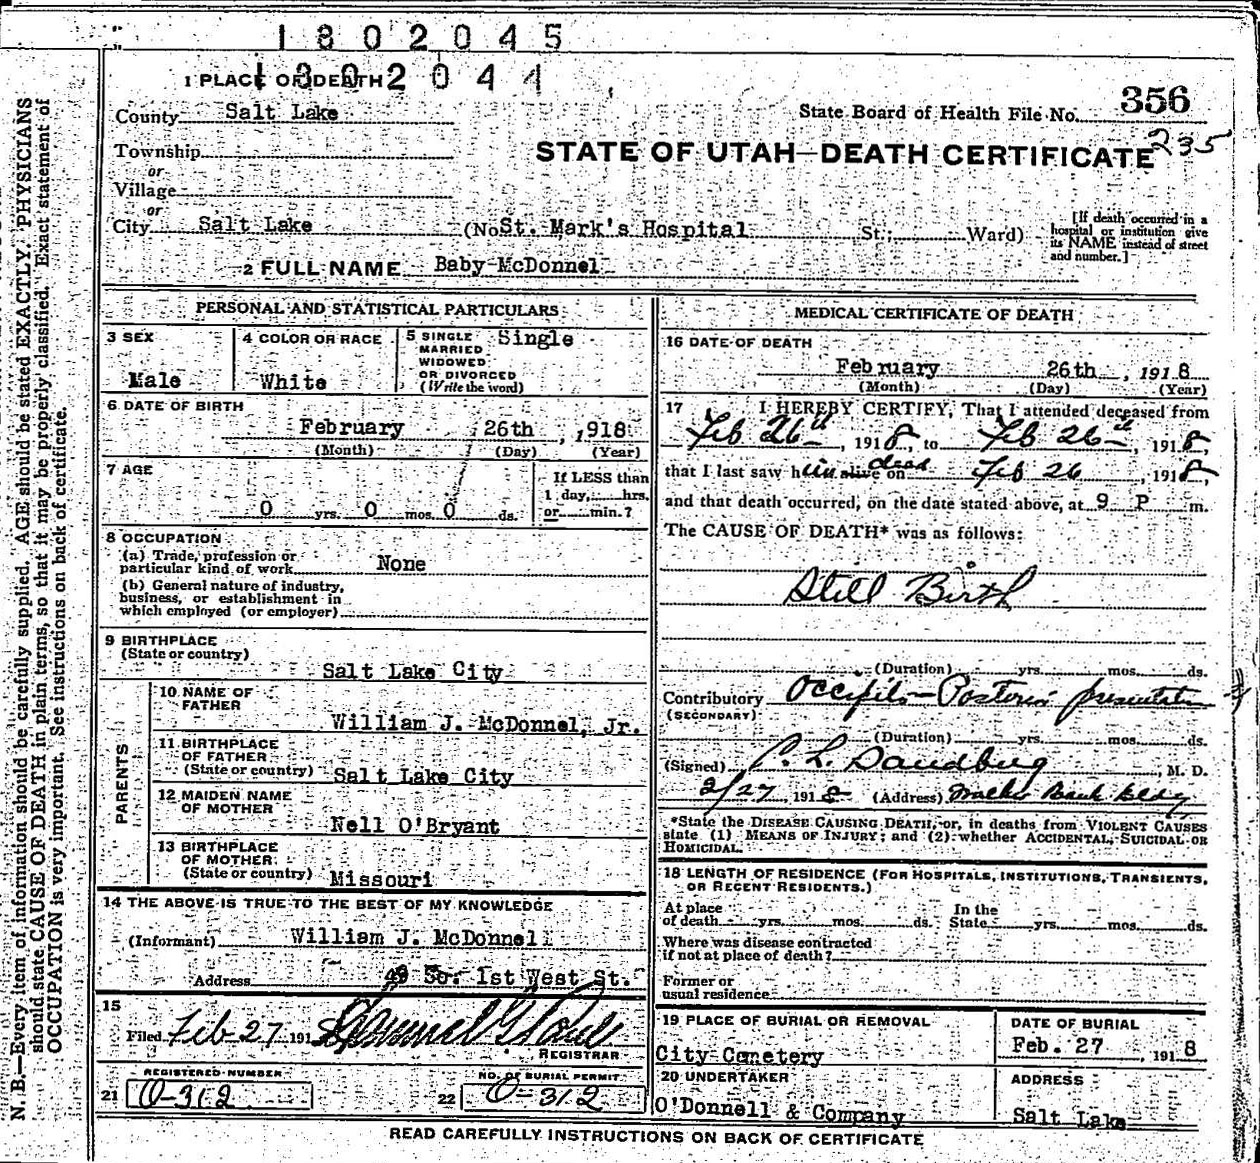 1802045
1802044
1 PLACE OF DEATH
County Salt Lake
State Board of Health File No. 356
235
Township
or
Village
or
STATE OF UTAH—DEATH CERTIFICATE
City Salt Lake (No St. Mark's Hospital St.; Ward)
[If death occurred in a hospital or institution give its NAME instead of street and number.]
2 FULL NAME Baby McDonnel
PERSONAL AND STATISTICAL PARTICULARS
3 SEX
Male
4 COLOR OR RACE
White
5 SINGLE MARRIED WIDOWED OR DIVORCED (Write the word)
Single
6 DATE OF BIRTH
February 26th, 1918
(Month) (Day) (Year)
7 AGE
0 yrs. 0 mos. 0 ds.
If LESS than
1 day, hrs.
or min.?
8 OCCUPATION
(a) Trade, profession or
particular kind of work None
(b) General nature of industry,
business, or establishment in
which employed (or employer)
9 BIRTHPLACE
(State or country)
Salt Lake City
PARENTS
10 NAME OF
FATHER
William J. McDonnel, Jr.
11 BIRTHPLACE
OF FATHER
(State or country) Salt Lake City
12 MAIDEN NAME
OF MOTHER
Nell O'Bryant
13 BIRTHPLACE
OF MOTHER
(State or country)
Missouri
14 THE ABOVE IS TRUE TO THE BEST OF MY KNOWLEDGE
(Informant) William J. McDonnel
Address So. 1st West St.
15
Filed Feb 27 191
REGISTRAR
REGISTERED NUMBER
21 O-312
NO. OF BURIAL PERMIT
22 O-312
MEDICAL CERTIFICATE OF DEATH
16 DATE OF DEATH
February 26th, 1918
(Month) (Day) (Year)
17 I HEREBY CERTIFY, That I attended deceased from
Feb 26th, 1918, to Feb 26th, 1918,
that I last saw him alive on dead Feb 26, 1918,
and that death occurred, on the date stated above, at 9 P m.
The CAUSE OF DEATH* was as follows:
Still Birth
(Duration) yrs. mos. ds.
Contributory Occipito-Posterior presentation
(SECONDARY)
(Duration) yrs. mos. ds.
(Signed) C. L. Sandberg, M. D.
2/27 1918 (Address) Walker Bank Bldg
*State the DISEASE CAUSING DEATH, or, in deaths from VIOLENT CAUSES
state (1) MEANS OF INJURY; and (2) whether ACCIDENTAL, SUICIDAL OR
HOMICIDAL.
18 LENGTH OF RESIDENCE (FOR HOSPITALS, INSTITUTIONS, TRANSIENTS,
OR RECENT RESIDENTS.)
At place
of death yrs. mos. ds.
In the
State yrs. mos. ds.
Where was disease contracted
if not at place of death?
Former or
usual residence
19 PLACE OF BURIAL OR REMOVAL
City Cemetery
DATE OF BURIAL
Feb. 27, 1918
20 UNDERTAKER
O'Donnell & Company
ADDRESS
Salt Lake
READ CAREFULLY INSTRUCTIONS ON BACK OF CERTIFICATE
N. B.—Every item of information should be carefully supplied. AGE should be stated EXACTLY. PHYSICIANS
should state CAUSE OF DEATH in plain terms, so that it may be properly classified. Exact statement of
OCCUPATION is very important. See instructions on back of certificate.